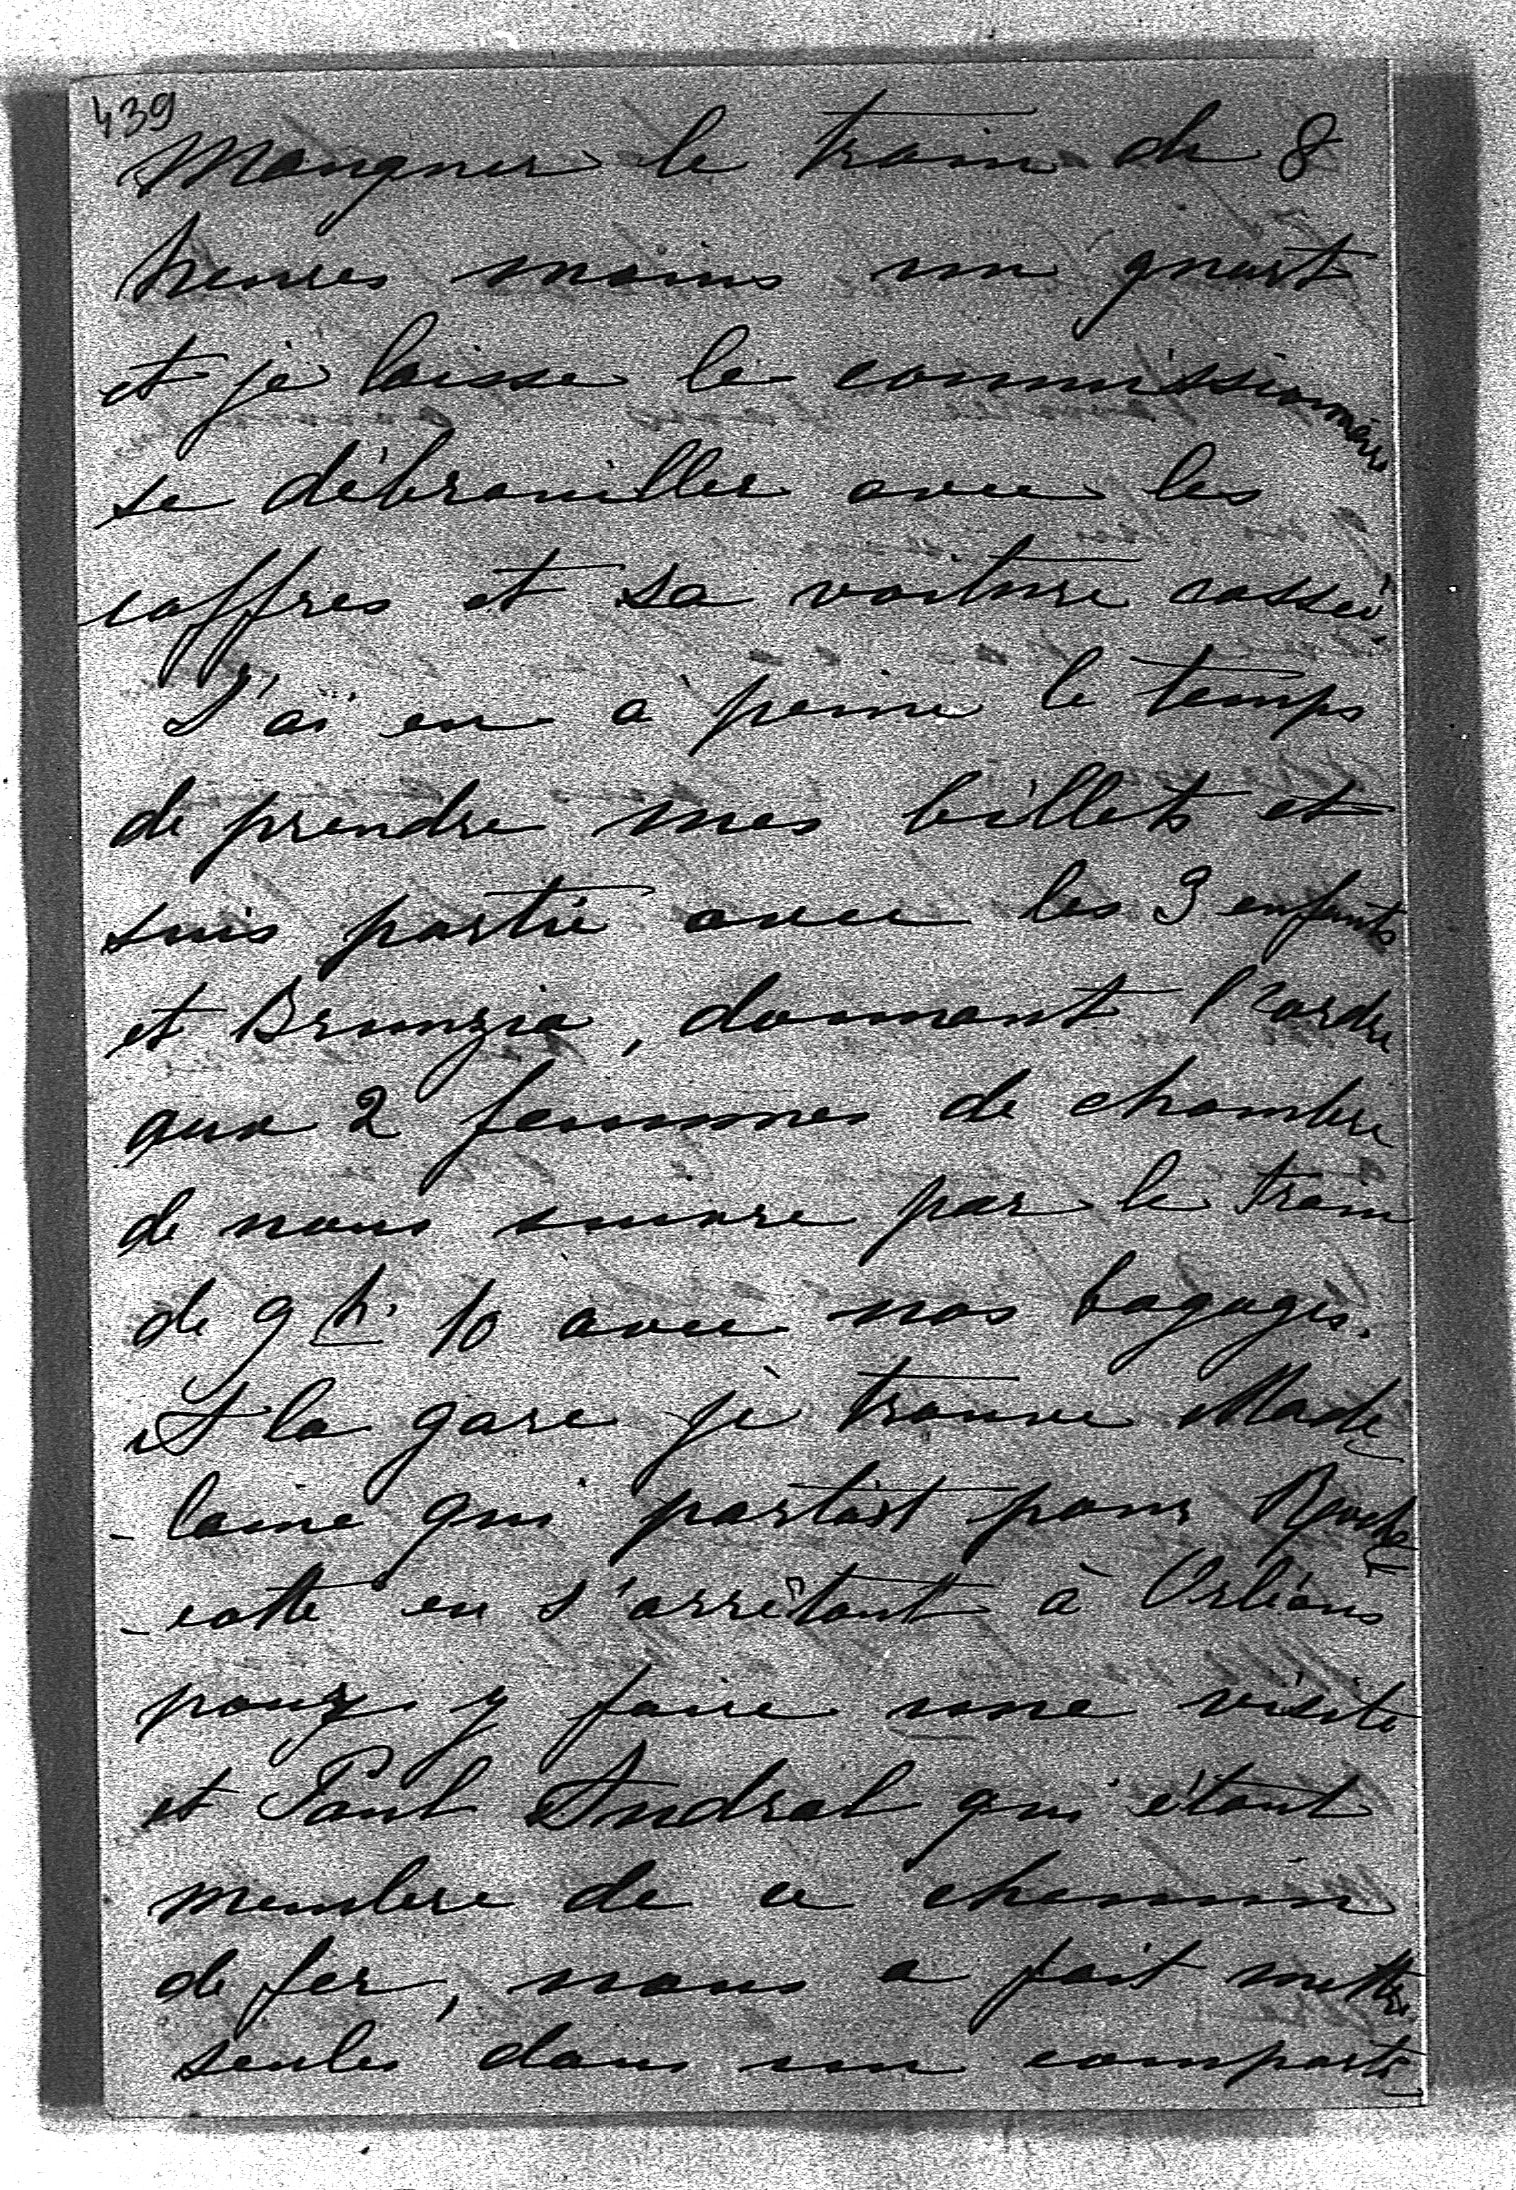 439
manquer le train de 8
heures moins un quart
et je laisse le commissionnaire
se débrouiller avec les
coffres et sa voiture cassée.
J'ai eu à peine le temps
de prendre mes billets et
suis partie avec les 3 enfants
et Brunzia, donnant l'ordre
aux 2 femmes de chambre
de nous suivre par le train
de 9 h. 10 avec nos bagages.
A la gare je trouve Made-
-laine qui partait pour Roche-
-cotte en s'arrêtant à Orléans
pour y faire une visite
et Paul Andral qui étant
membre de ce chemin
de fer, nous a fait mettre
seules dans un comparti-